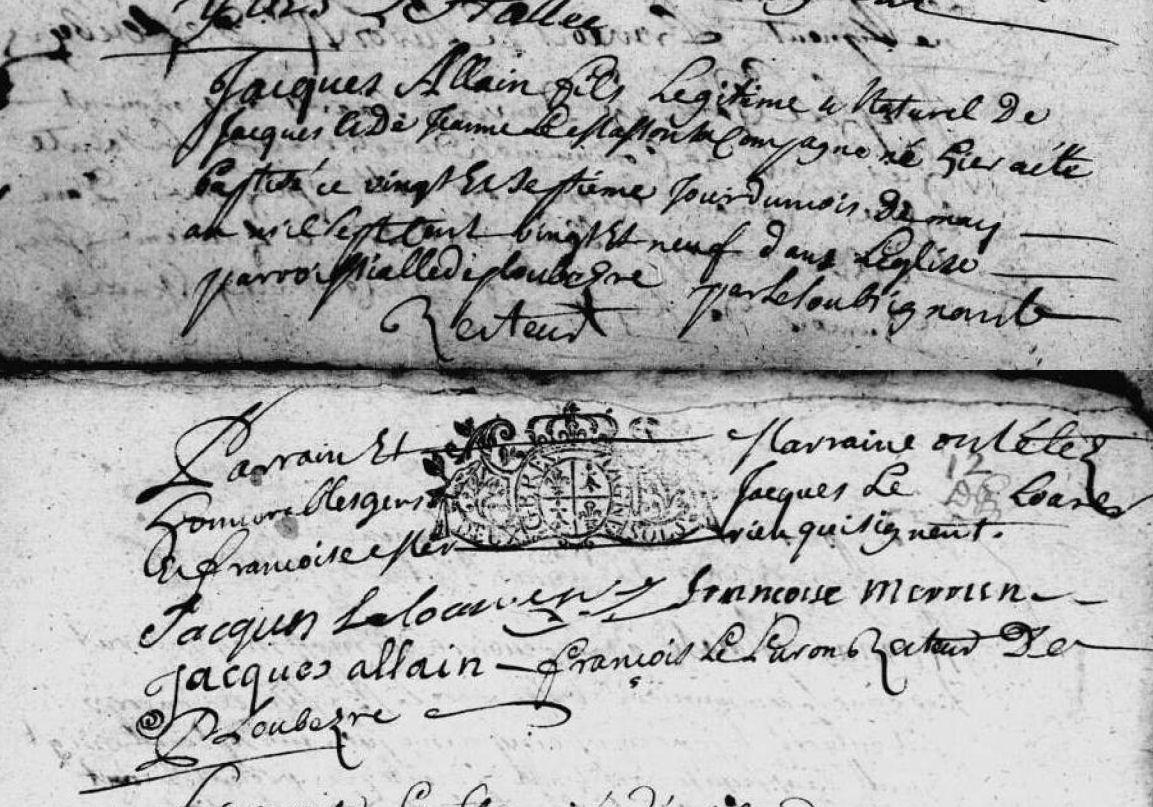 Jacques Allain fils Legitime et Naturel De
Jacques et De Jeanne Le sa Compagne né hier a été
baptisé ce vingt Et Septieme Jour du mois de may
an mil Sept Cent vingt Et neuf dans L'eglise
parroissialle de ploubezre par Le Soubsignant
Recteur
Parrain Et Marraine ont étez
honnorables gens Jacques Le Loarer
Et francoise Mer rien qui signent.
Jacques Le loarer francoise Merrien
Jacques allain françois Le Luron Recteur De
Ploubezre